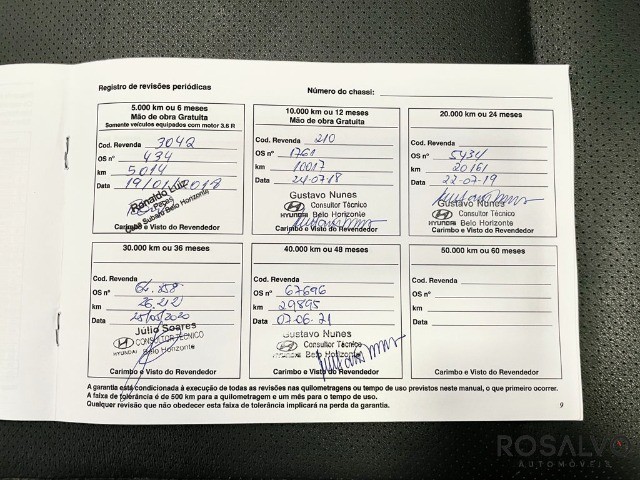 Registro de revisões periódicas
Número do chassi:
5.000 km ou 6 meses
Mão de obra Gratuita
Somente veículos equipados com motor 3.6 R
Cod. Revenda 3042
OS nº 434
km 5.014
Data 19/01/2018
Ronaldo Luiz
Peças
Subaru Belo Horizonte
Carimbo e Visto do Revendedor
10.000 km ou 12 meses
Mão de obra Gratuita
Cod. Revenda 210
OS nº 1761
km 10017
Data 24-07-18
Gustavo Nunes
Consultor Técnico
HYUNDAI Belo Horizonte
Carimbo e Visto do Revendedor
20.000 km ou 24 meses
Cod. Revenda
OS nº 5434
km 20161
Data 22-07-19
Gustavo Nunes
Consultor Técnico
HYUNDAI Belo Horizonte
Carimbo e Visto do Revendedor
30.000 km ou 36 meses
Cod. Revenda
OS nº 64.858
km 26.212
Data 25/05/2020
Júlio Soares
CONSULTOR TÉCNICO
HYUNDAI Belo Horizonte
Carimbo e Visto do Revendedor
40.000 km ou 48 meses
Cod. Revenda
OS nº 67696
km 29895
Data 07-06-21
Gustavo Nunes
Consultor Técnico
HYUNDAI Belo Horizonte
Carimbo e Visto do Revendedor
50.000 km ou 60 meses
Cod. Revenda
OS nº
km
Data
Carimbo e Visto do Revendedor
A garantia está condicionada à execução de todas as revisões nas quilometragens ou tempo de uso previstos neste manual, o que primeiro ocorrer.
A faixa de tolerância é de 500 km para a quilometragem e um mês para o tempo de uso.
Qualquer revisão que não obedecer esta faixa de tolerância implicará na perda da garantia.
9
ROSALVO
AUTOMÓVEIS